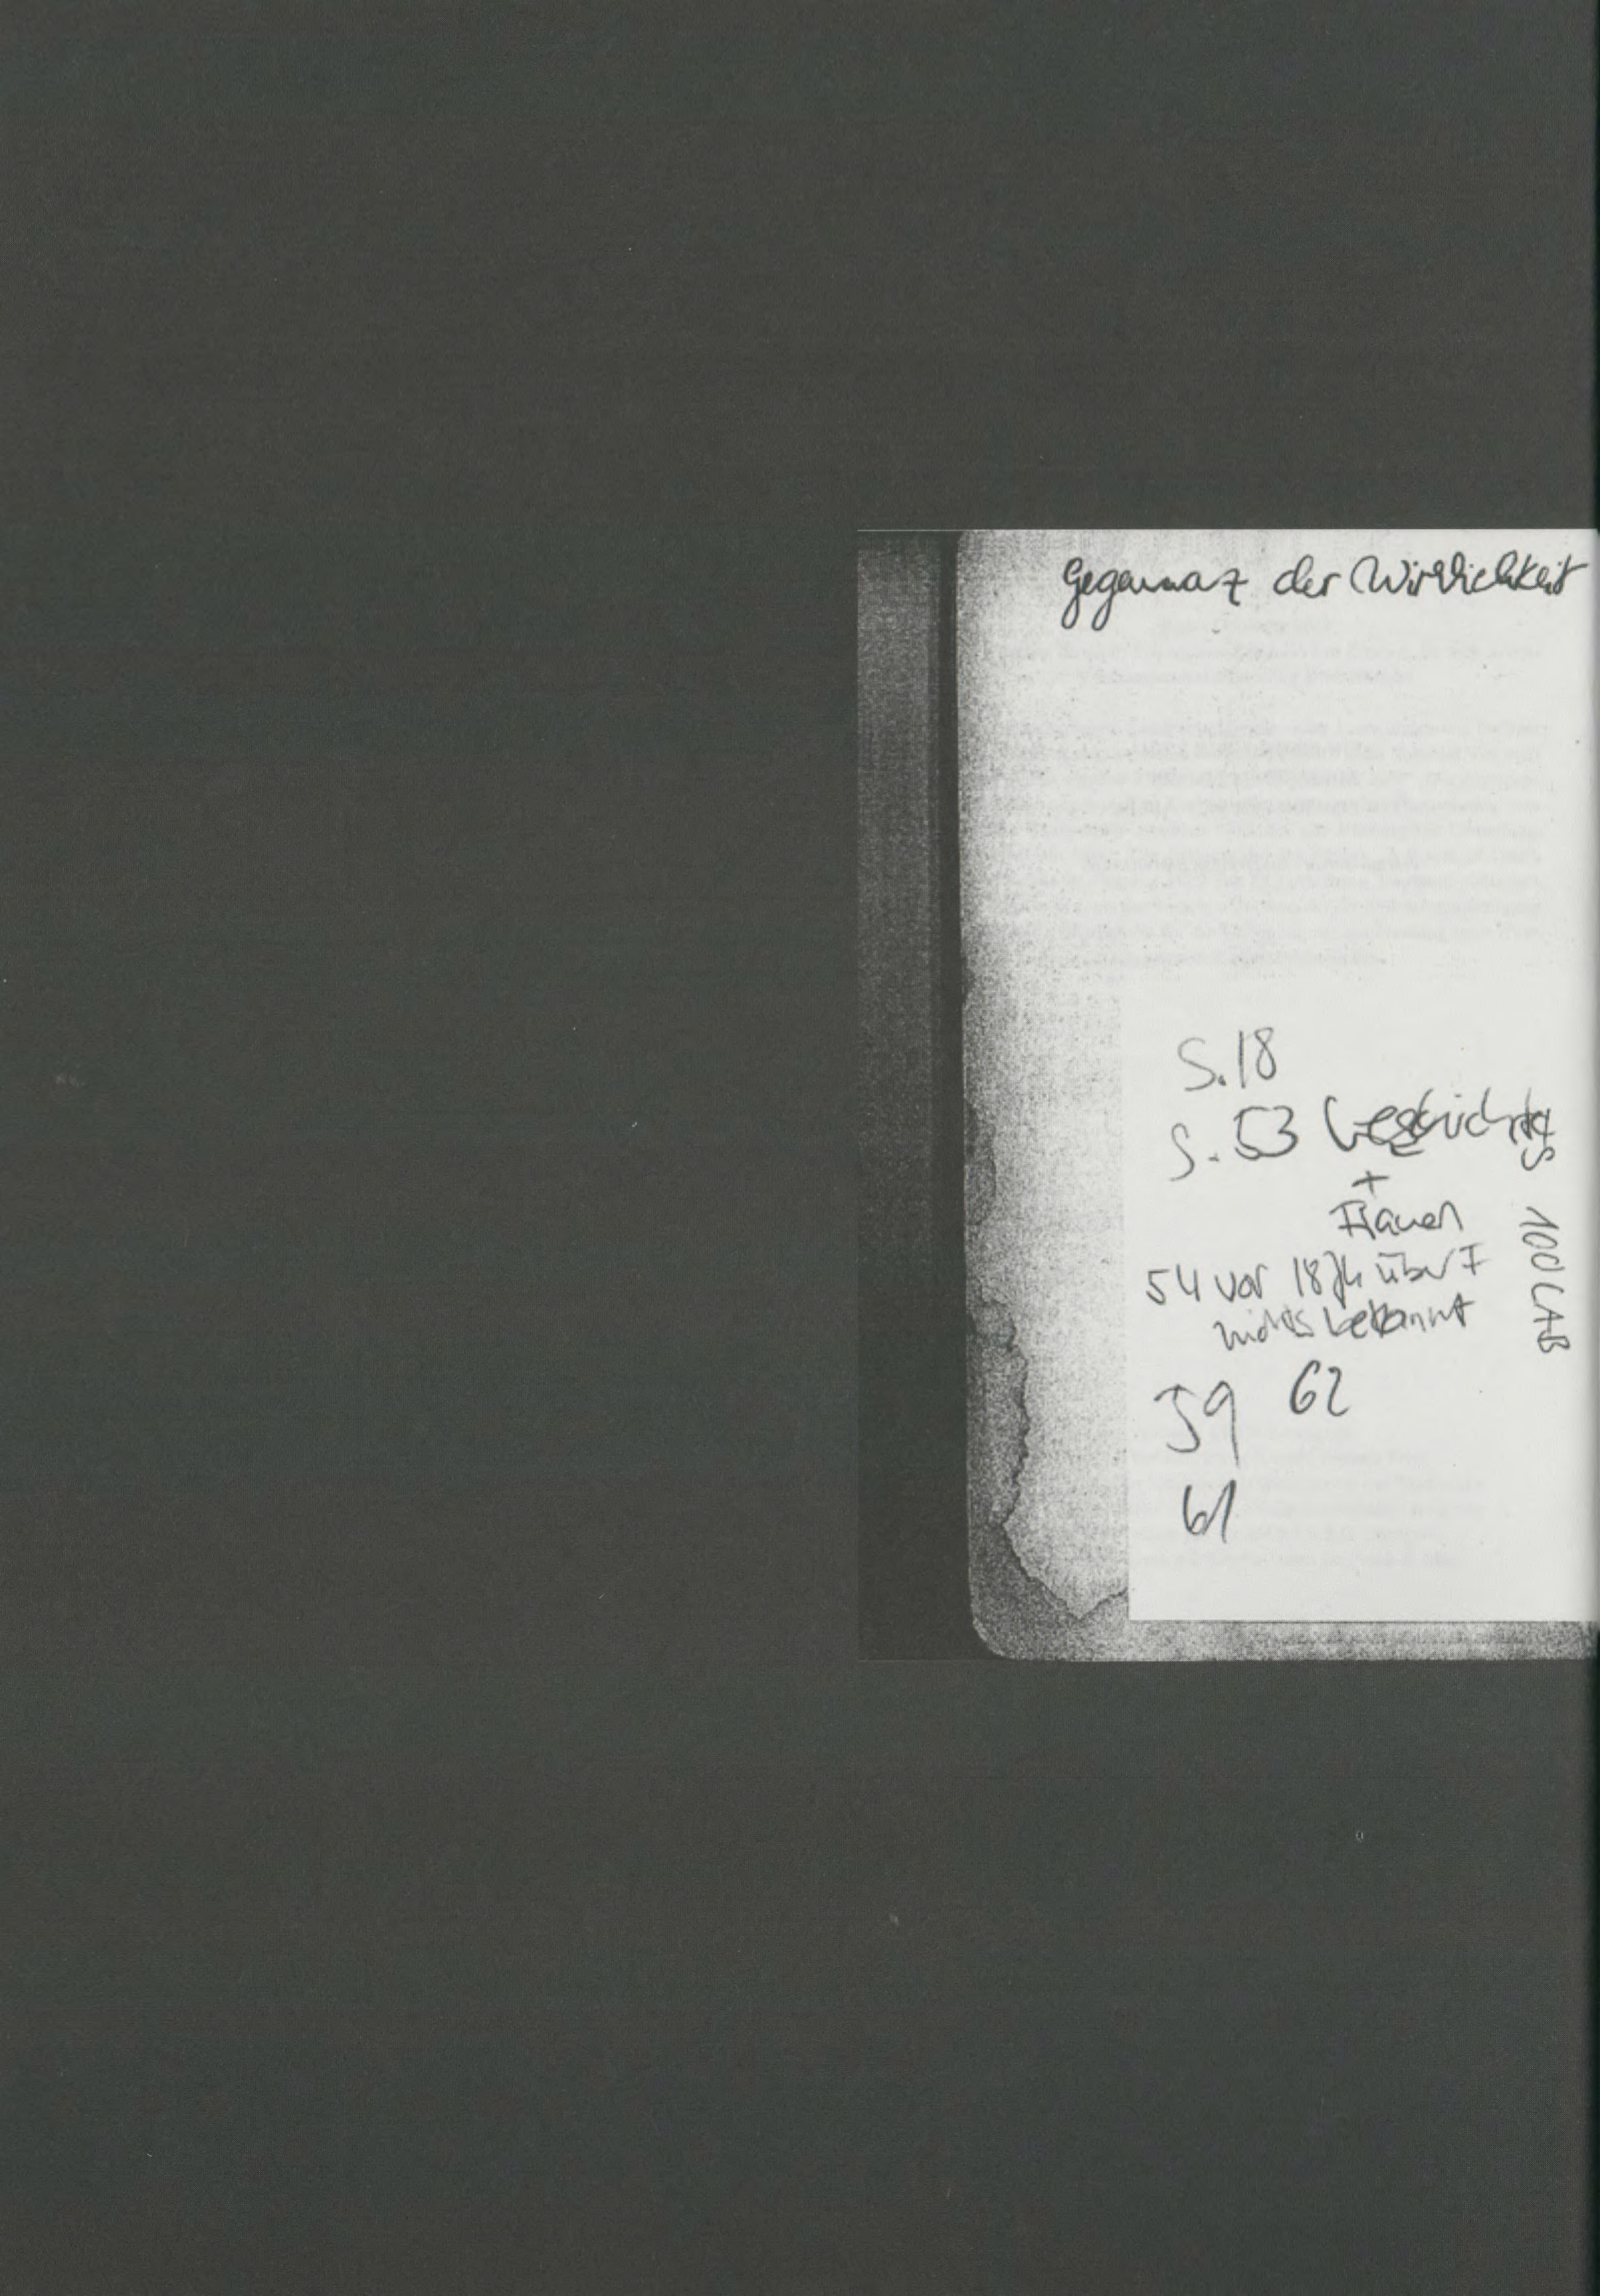 der Wirklichkeit
S. 18
S. 53 Geschichte
+
Frauen
54 vor 18 Jh über F
nichts bekannt
59 62
61
100 LAB